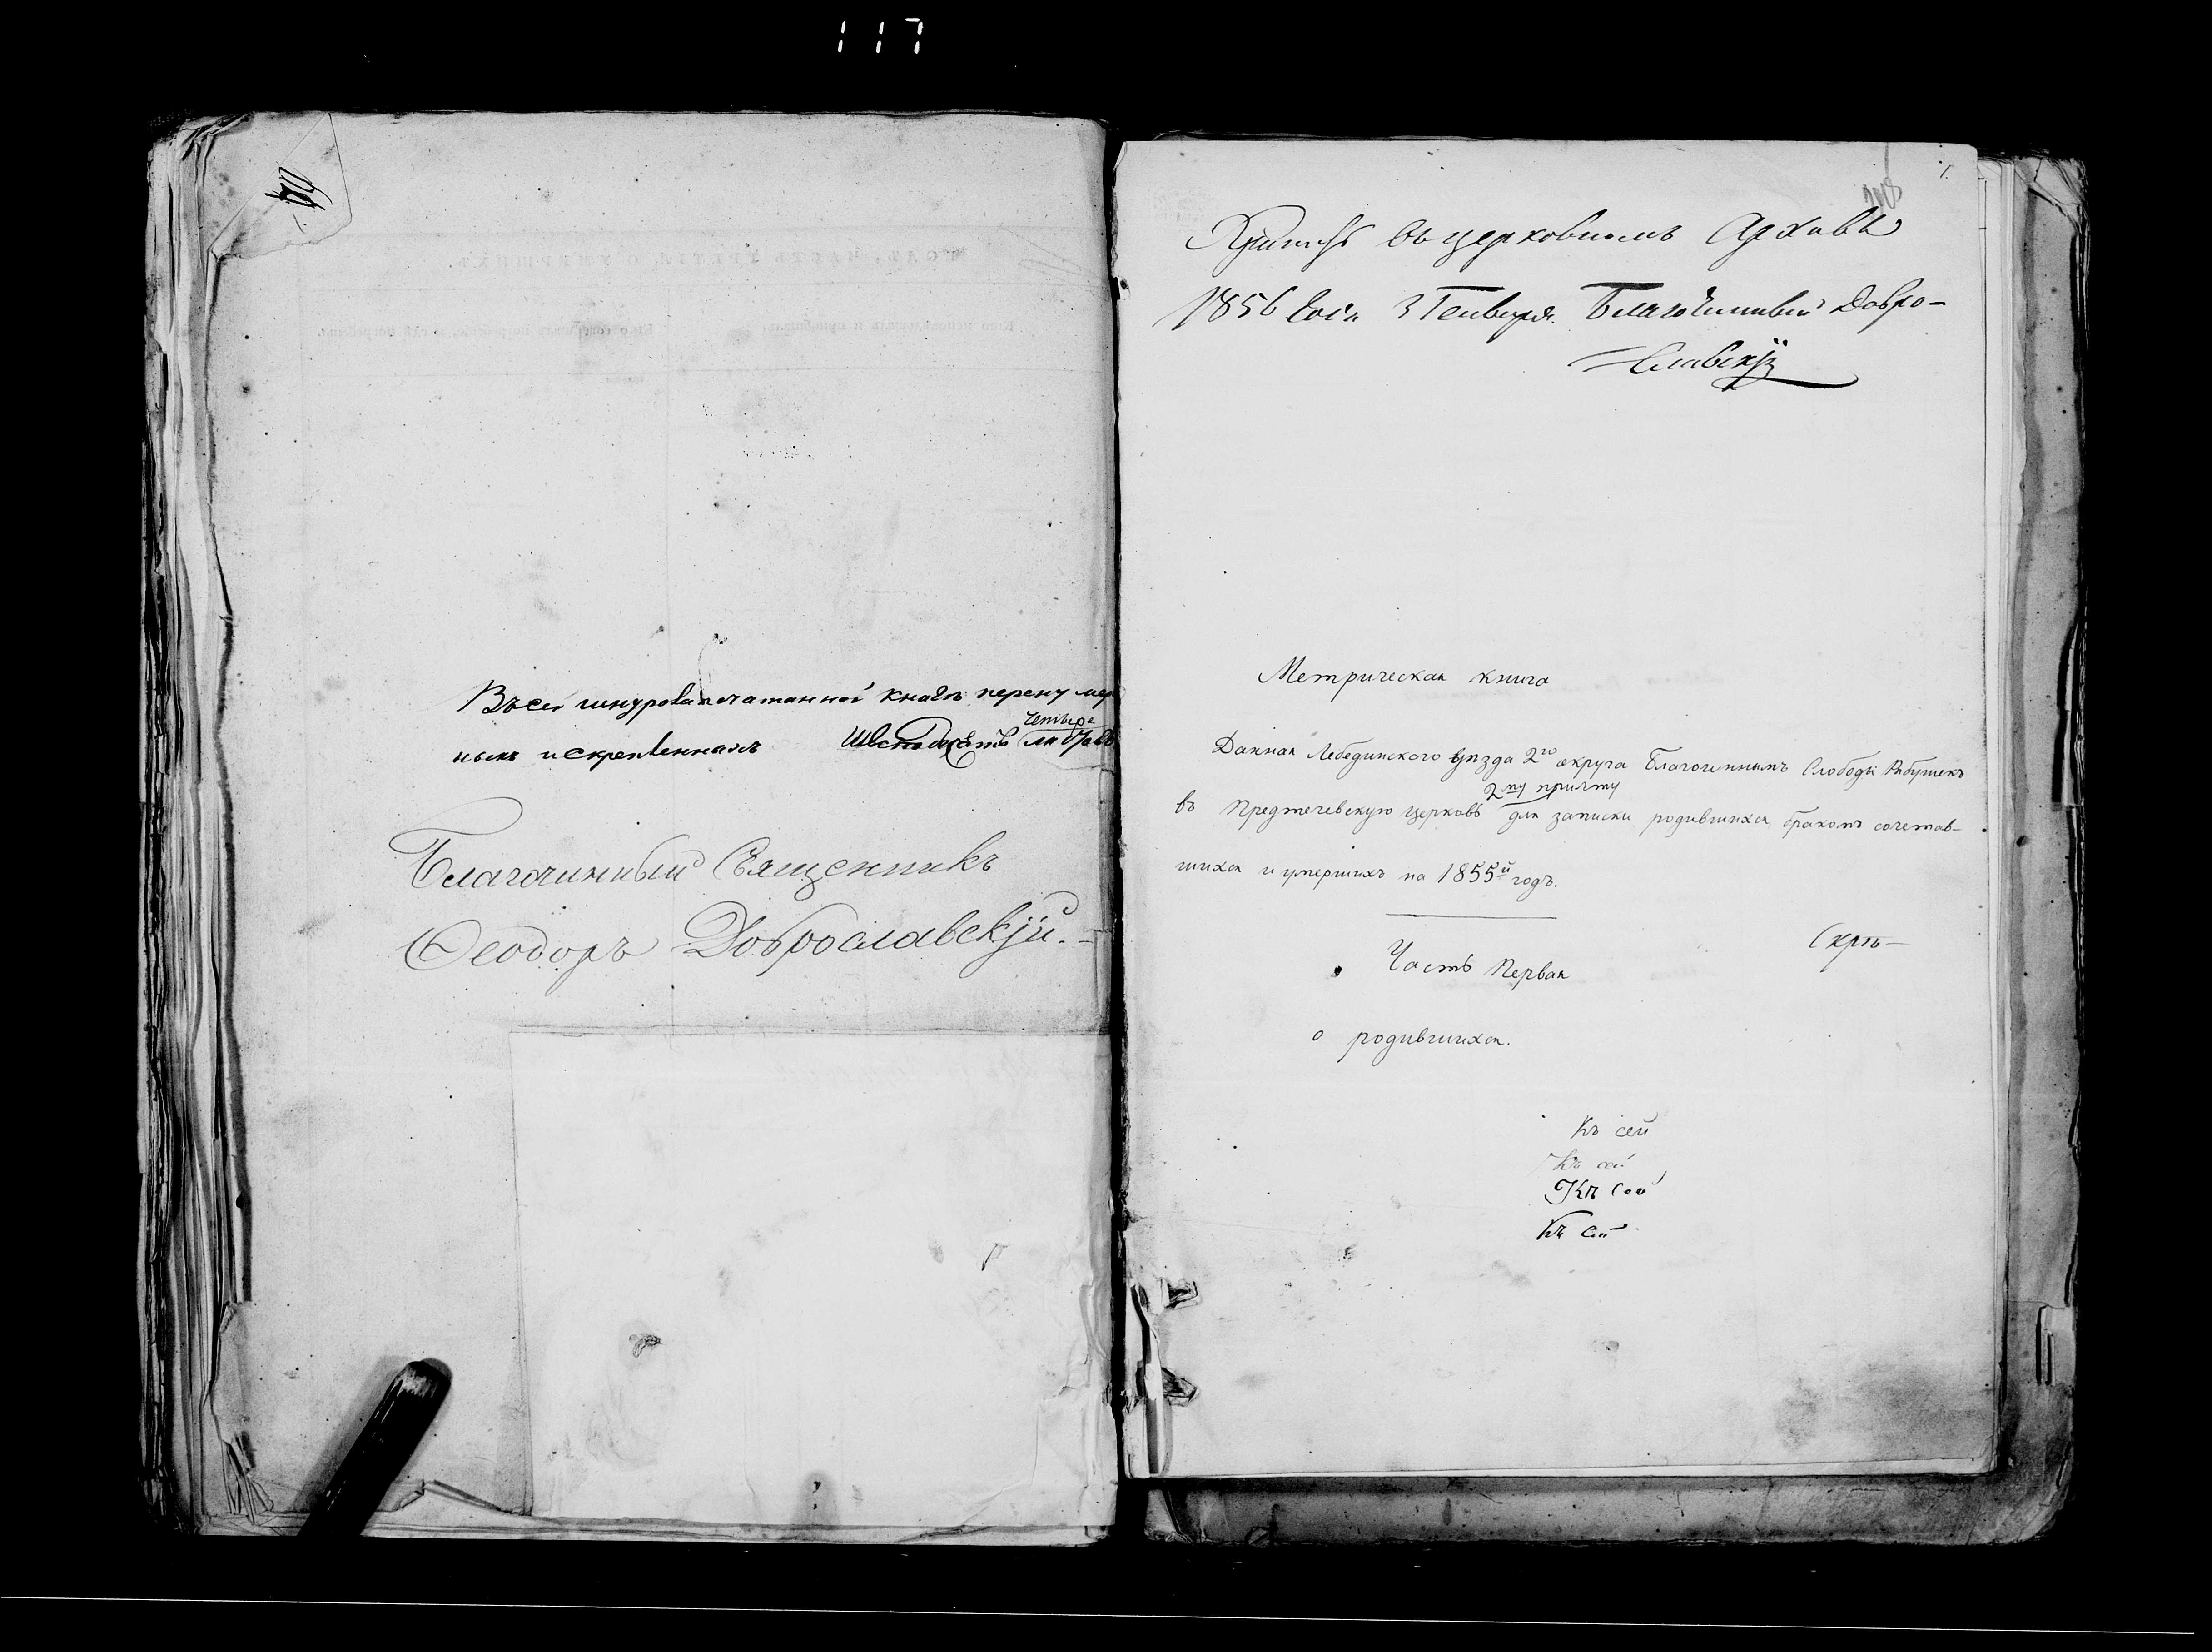 117
Въ сей шнурозапечатанной книгѣ перенумер
четыре
нымъ и скрепленнымъ Шестьдесятъ листовъ
Благочинный Священникъ
Ѳеодоръ Доброславскій.
1.
Хранить въ церковномъ Архивѣ
1856 года 3 Генваря. Благочинный Добро-
славскій
Метрическая книга
Данная Лебединского уѣзда 2го округа Благочиннымъ Слободы Рябушекъ
2му причту
въ Предтечевскую церковь для записки родившихся, бракомъ сочетав-
шихся и умершихъ на 1855й годъ.
Скрѣ-
Часть Первая
о родившихся.
Къ сей
Къ сей
Къ Сей
Къ Сей